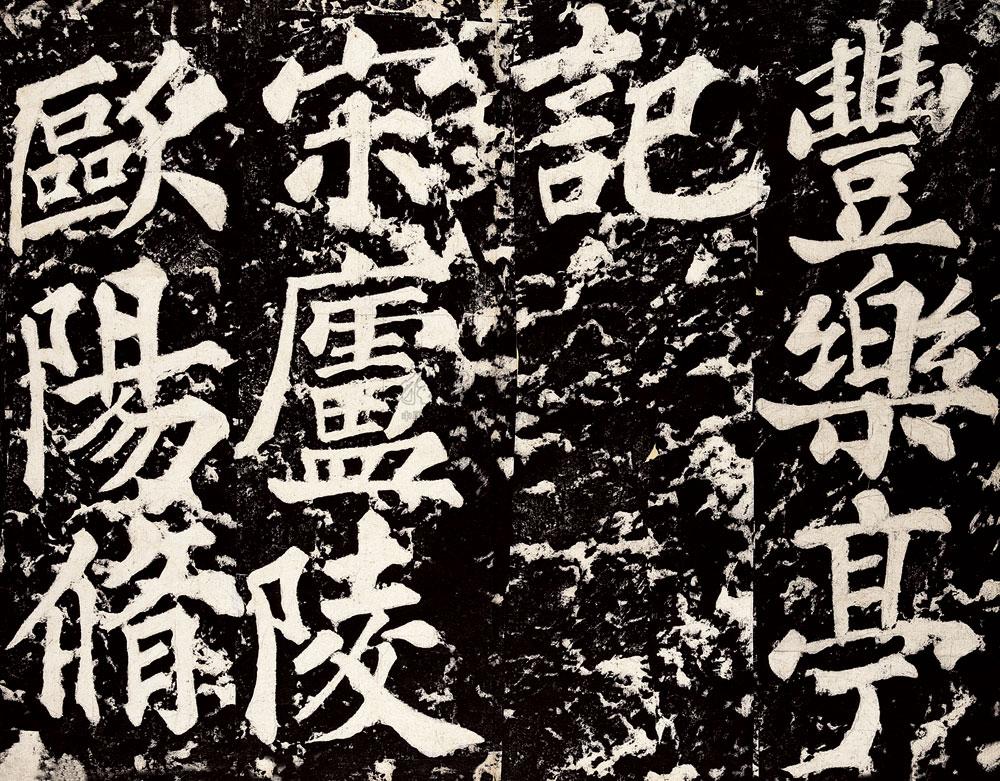 豐樂亭
記
宋廬陵
歐陽脩